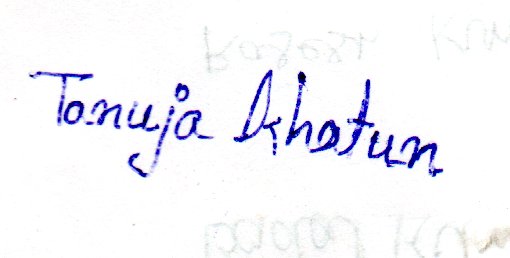 Tanuja Khatun